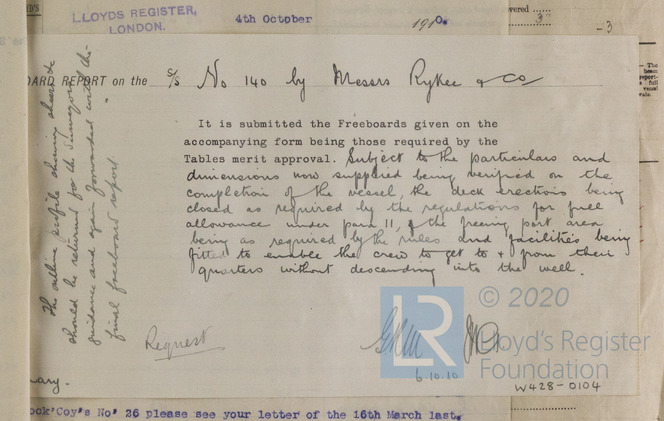 LLOYDS REGISTER,
LONDON.
4th October 1910.
vered 3"
-3
OARD REPORT on the S/S No 140 by Messrs Rykee & Co
It is submitted the Freeboards given on the
accompanying form being those required by the
Tables merit approval. Subject to the particulars and
dimensions now supplied being verified on the
completion of the vessel, the deck erections being
closed as required by the regulations for full
allowance under para 11, & the freeing port area
being as required by the rules and facilities being
fitted to enable the crew to get to & from their
quarters without descending into the well.
The outline profile showing sheer &c
should be returned for the Surveyors
guidance and again forwarded with the
final freeboard report
Request
6.10.10
W428-0104
© 2020
LR
Lloyd's Register
Foundation
ock'Coy's No' 26 please see your letter of the 16th March last.